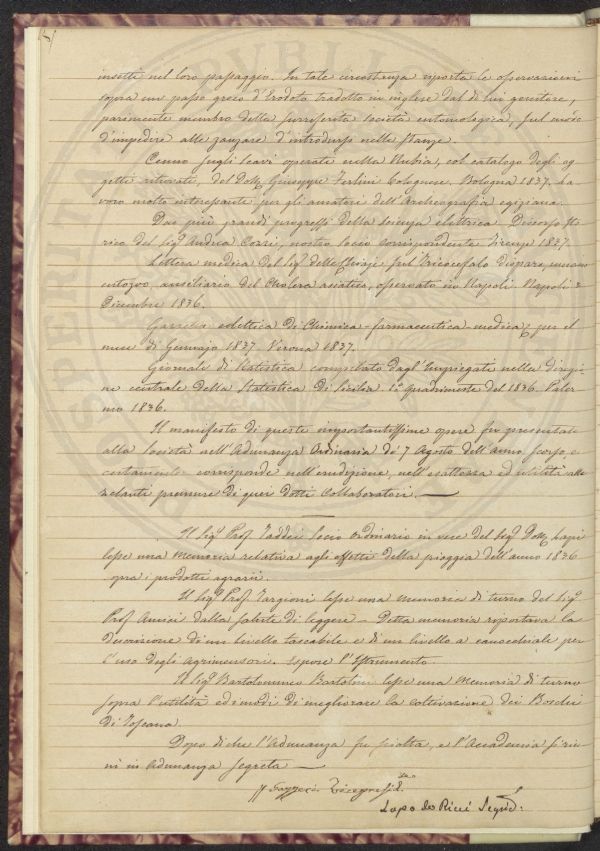 insetti nel loro passaggio. In tale circostanza riporta le osservazioni
sopra un passo greco d'Erodoto tradotto in inglese dal di lui genitore,
parimente membro della surriferita Società entomologica, sul modo
d'impedire alle zanzare d'introdursi nelle stanze.
Cenno sugli scavi operati nella Nubia, col catalogo degli og
getti ritrovati, del Dott. Giuseppe Ferlini bolognese. Bologna 1837. La
voro molto interessante per gli amatori dell'Archeografia egiziana.
Dei più grandi progressi della scienza elettrica. Discorso sto
rico del Sigr. Andrea Cozzi, nostro socio corrispondente. Firenze 1837.
Lettera medica del Sigr. delle Chiaje sul Tricocefalo dispare,
entozoo, ausiliario del Cholera asiatico, osservato in Napoli. Napoli
Dicembre 1836.
Gazzetta eclettica di Chimica-farmaceutica-medica, per il
mese di Gennajo 1837. Verona 1837.
Giornale di Statistica compilato dagl'Impiegati nella direzio
ne centrale della Statistica di Sicilia. 1º quadrimestre del 1836. Paler
mo 1836.
Il manifesto di queste importantissime opere fu presentato
alla Società nell'Adunanza Ordinaria de' 7 Agosto dell'anno scorso, e
certamente corrisponde nell'erudizione, nell'esattezza ed utilità alle
zelanti premure di quei dotti Collaboratori. —
Il Sigr. Prof. Taddei Socio ordinario in vece del Sigr. Dott. Lapi
lesse una Memoria relativa agli effetti della pioggia dell'anno 1836
sopra i prodotti agrarii.
Il Sigr. Prof. Targioni lesse una memoria di turno del Sigr.
Prof. Amici dalla salute di leggere — Detta memoria riportava la
descrizione di un livello tascabile e di un livello a canocchiale per
l'uso degli Agrimensori. Espose l'Istrumento.
Il Sigr. Bartolommeo Bartolini lesse una Memoria di turno
sopra l'utilità ed i modi di migliorare la coltivazione dei Boschi
di Toscana.
Dopo di che l'Adunanza fu sciolta, e l'Accademia si riu
nì in adunanza segreta —
Vicepresid.te
Lapo de Ricci Segr.